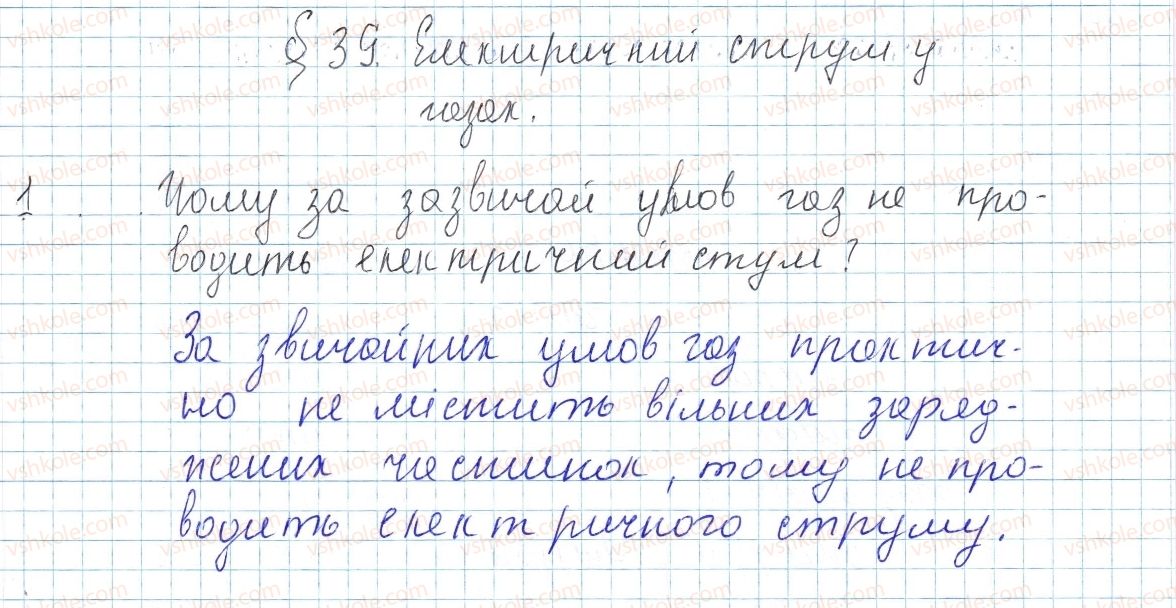 § 39. Електричний струм у
газах.
1 Чому за зазвичай умов газ не про-
водить електричний стум?
За звичайних умов газ практич-
но не містить вільних заряд-
жених частинок, тому не про-
водить електричного струму.
vshkole.com